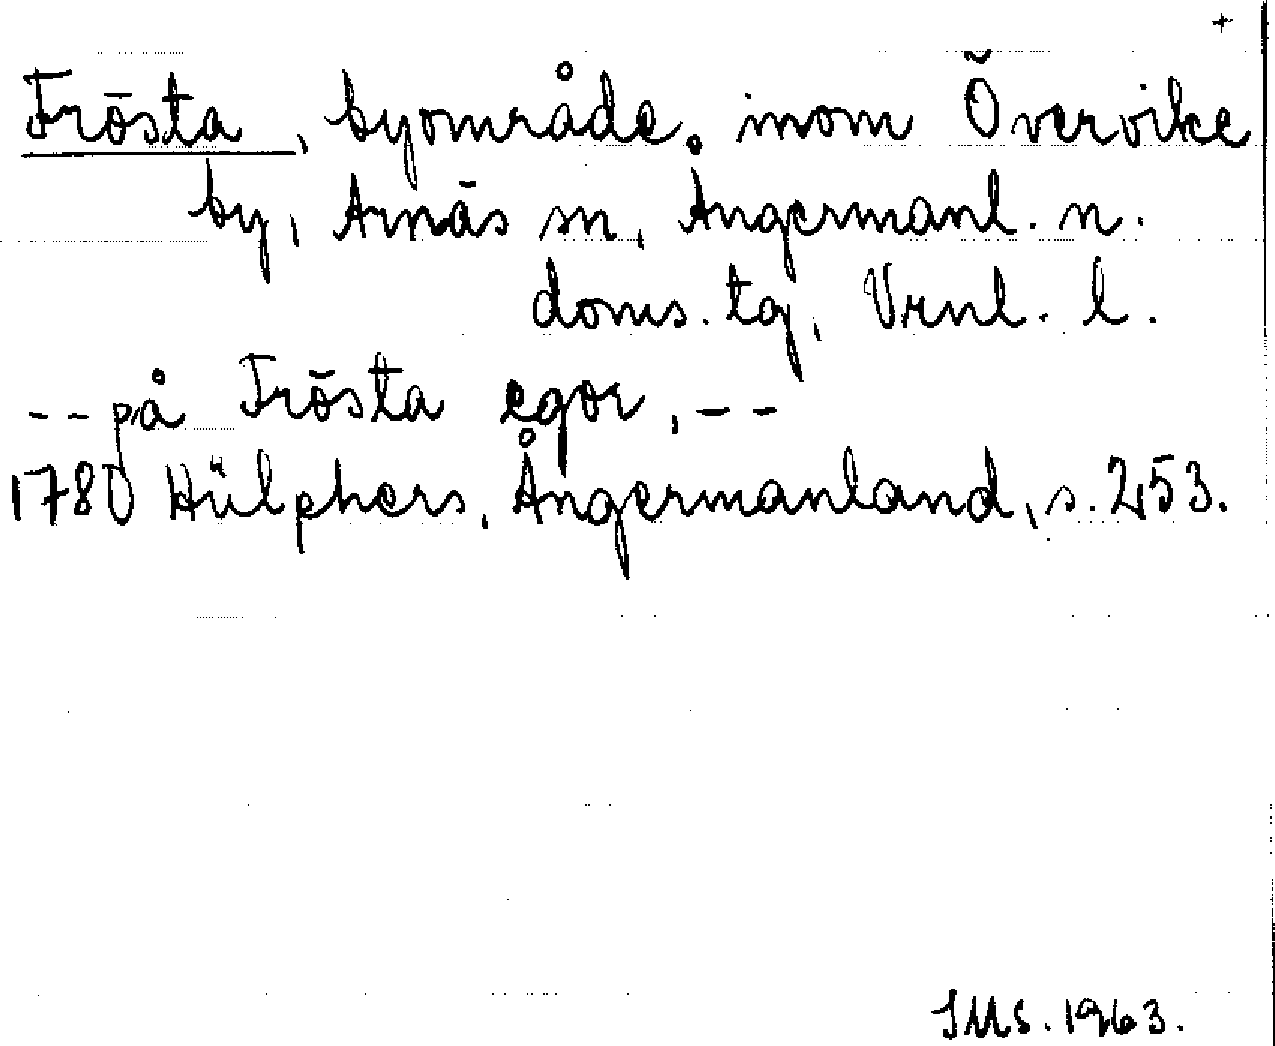 +
Trösta, byområde inom Övervike
by, Arnäs sn, Ångermanl. n.
doms. tg, Vrnl. l.
-- på Trösta egor, --
1780 Hülphers, Ångermanland, s. 253.
IMS. 1963.